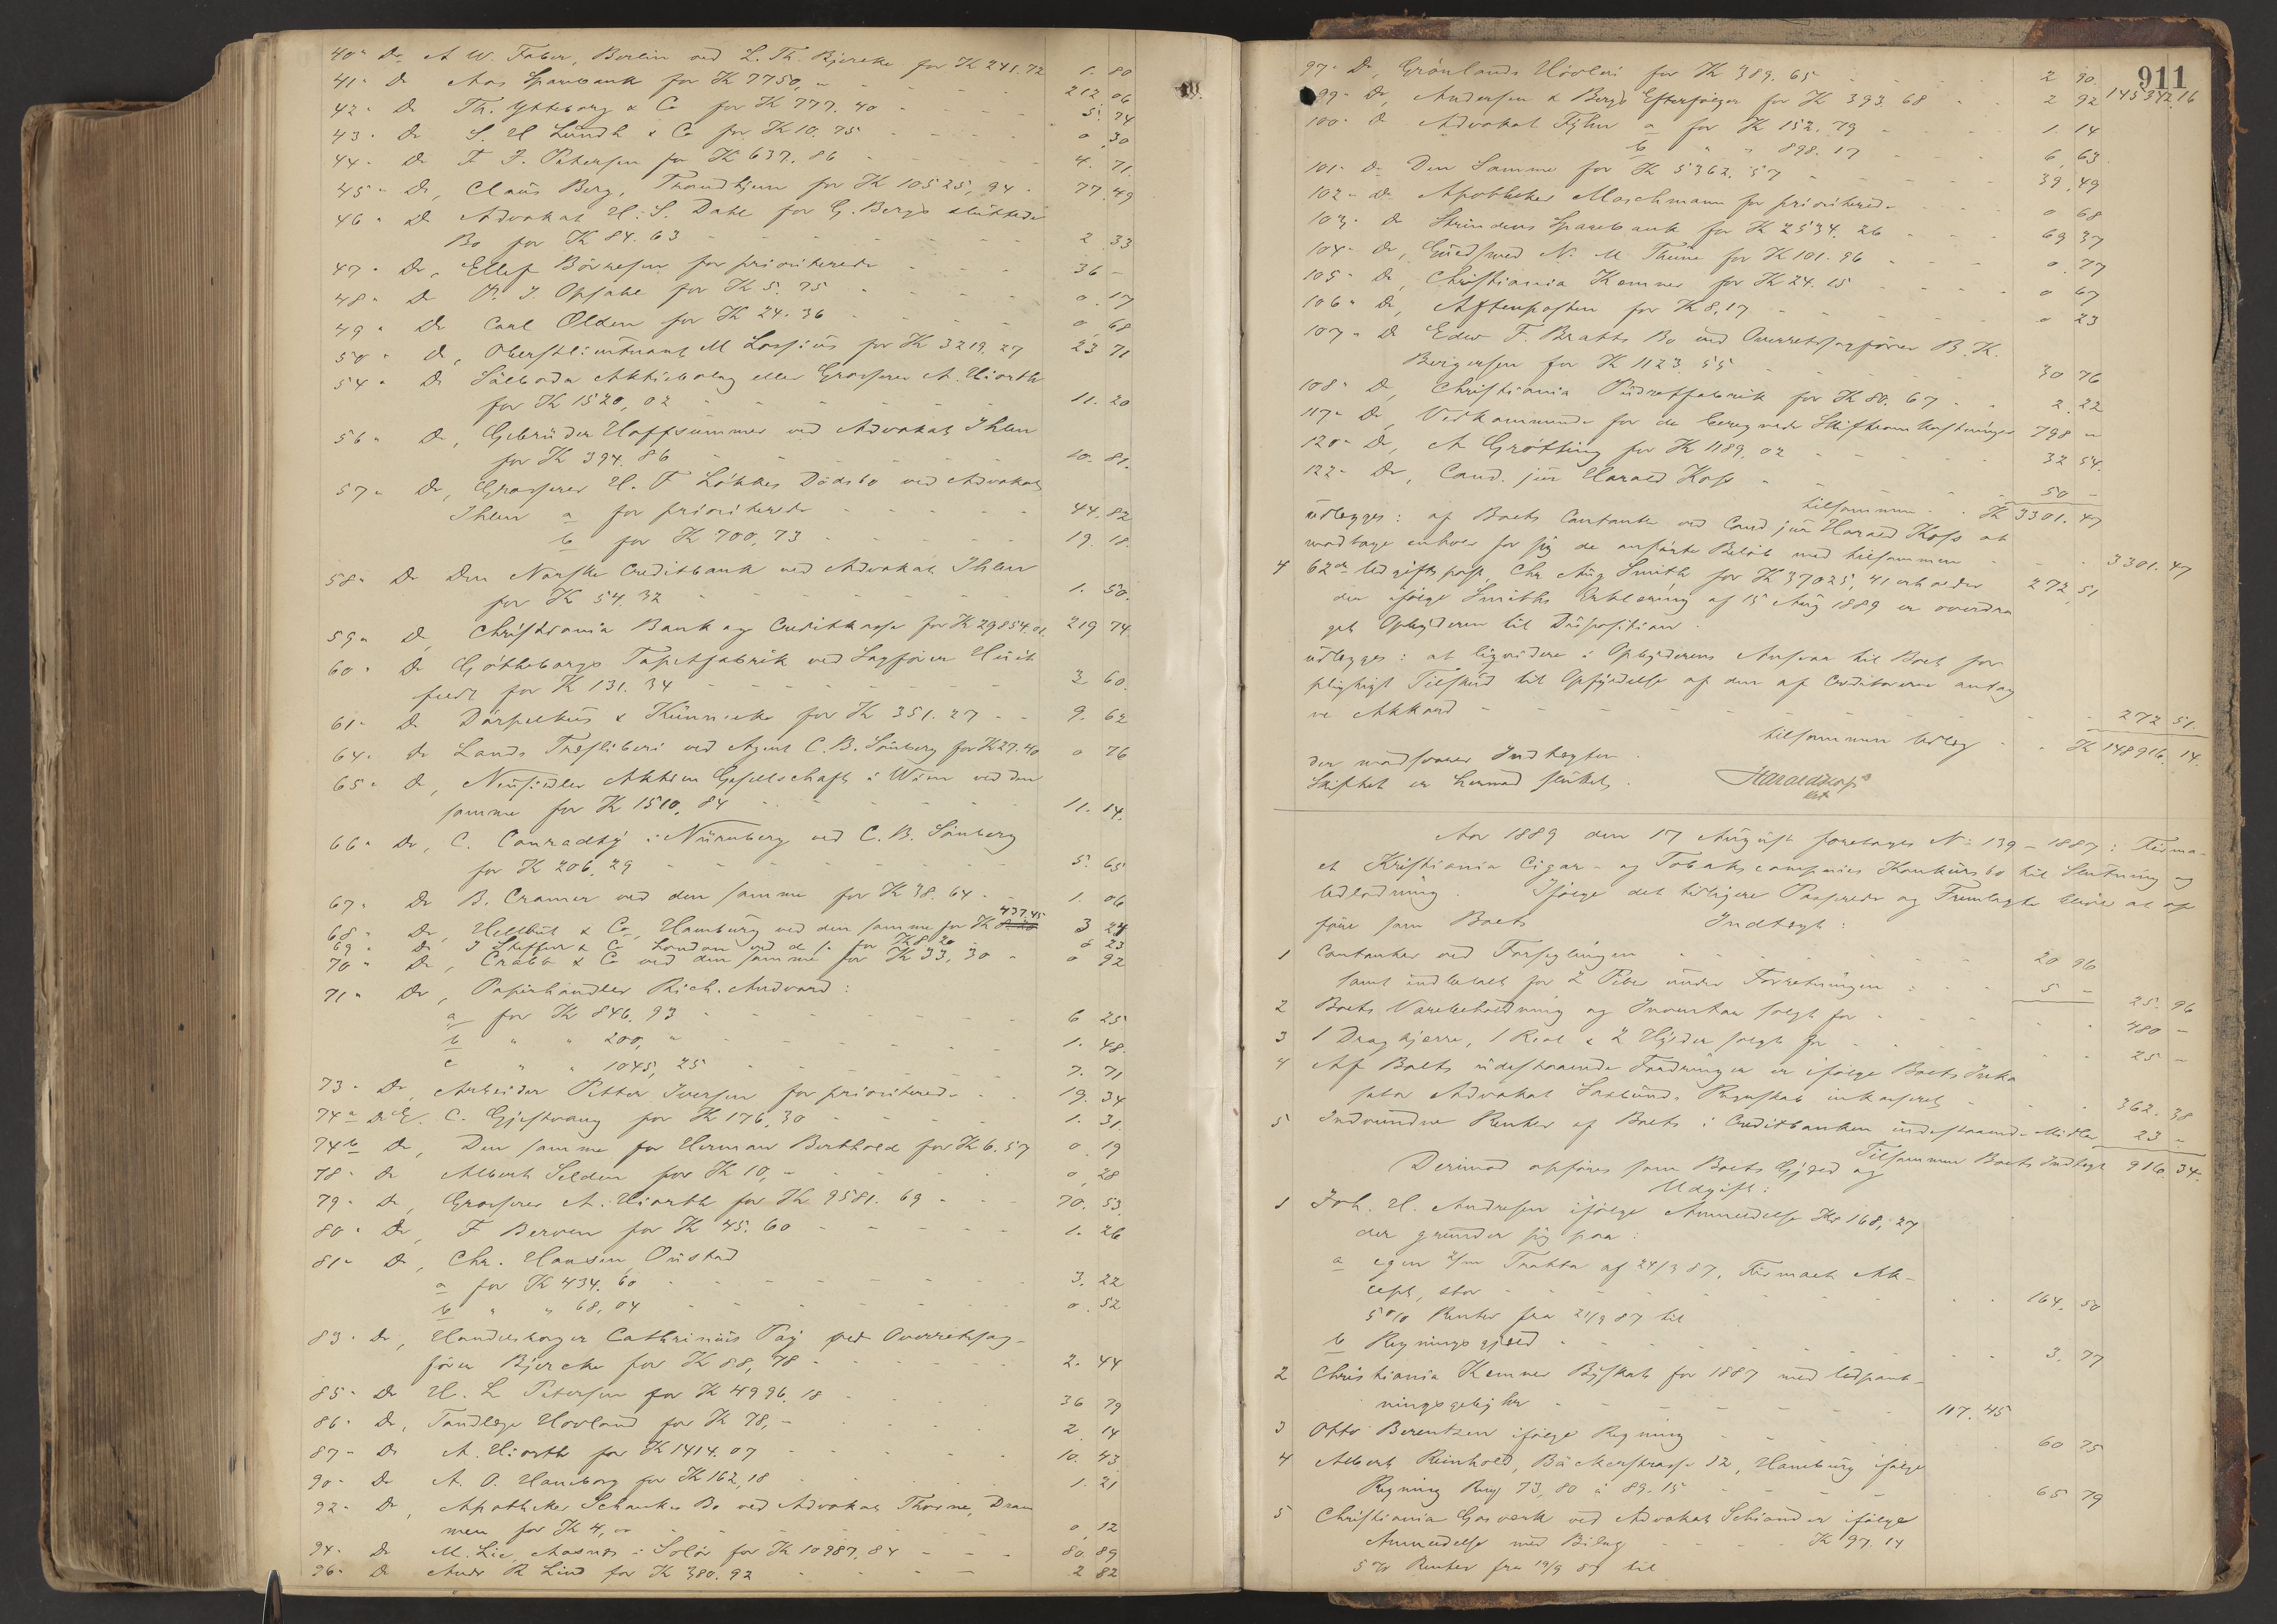 40 " Do A W. Faber, Berlin ved L. Th. Bjercke for K 241.72 1. 80
41 " Do Aas Sparebank for K 7750, - 212 06
42 " Do Th. Ytteborg & Co for K 777. 40 5. 74
43 " Do S. H Lundh & Co for K 10. 75 0 30
44 " Do F. J. Petersen for K 637. 86 4. 71.
45 " Do, Claus Berg, Trondhjem for K 10525, 94 77. 49
46 " Do Advokat H. S. Dahl for G. Bergs sluttede
Bo for K 84. 63 2 33
47 " Do, Ellef Børresen for prioriterede 36 -
48 " Do O. J. Opsahl for K 5. 75 0. 17
49 " Do Carl Olsen for K 24. 36 0, 68
50 " Do, Oberstlieutenant M Lossius for K 3219. 27 23 71
54 " Do Sälboda Aktiebolag eller Grosserer A. Hiorth
for K 1520, 02 11. 20
56 " Do, Gebrüder Hoffsümmer ved Advokat Ihlen
for K 394. 86 10. 81.
57 " Do, Grosserer H. F Løkkes Dødsbo ved Advokat
Ihlen a for prioriterede 44. 82
b for K 700, 73 19. 18.
58 " Do Den Norske Creditbank ved Advokat Ihlen
for K 54. 32 1. 50.
59 " Do Christiania Bank og Creditkasse for K 29854. 01. 219 74.
60 " Do Gøtheborgs Tapetfabrik ved Sagfører Huit
feldt for K 131. 34 3 60.
61 " Do Dörpelkus & Künnecke for K 351. 27 9. 62
64 " Do Lands Træsliberi ved Agent C. B. Sönberg for K 27. 40 0 76
65 " Do, Neusiedler Aktien Gesellschaft i Wien ved den
samme for K 1510, 84 11. 14.
66 " Do, C. Conradty i Nürnberg ved C. B. Sönberg
for K 206. 29 5. 65
67 " Do B. Cramer ved den samme for K 38. 64 1. 06
68 " Do, Heltbut & Co, Hamburg ved den samme for K 437.45 3 24
69 " Do J Steffens & Co London ved d. s. for K 8. 20 0 23
70 " Do, Crabb & Co ved den samme for K 33, 30 0 92
71 " Do, Papirhandler Rich. Andvord:
a for K 846. 93 6 25
b " " 200, " 1. 48.
c " " 1045, 25 7. 71
73 " Do, Arbeider Petter Iversen for prioritered 19. 34
74 a Do E. C. Gjestvang for K 176, 30 1. 31.
74 b Do, Den samme for Herman Berthold for K 6. 57 0. 19
78 " Do Albert Selden for K 10, - 0, 28
79 " Do, Grosserer A. Hiorth for K 9581. 69 70. 53.
80 " Do, F Berven for K 45. 60 1. 26
81 " Do, Chr. Hansen Onstad
a for K 434. 60 3. 22
b " " 68, 04 0. 52
83 " Do, Handelsborger Cathrinus Pay ved Overretssag-
fører Bjercke for K 88, 78 2. 44
85 " Do H. L Petersen for K 4996, 18 36 79
86 " Do, Tandlæge Hovland for K 78, - 2 14
87 " Do A. Hiorth for K 1414. 07 10. 43
90 " Do A. O. Hamborg for K 162, 18 1. 21
92 " Do, Apotheker Schankes Bo ved Advokat Thorne, Dram
men for K 4, - 0, 12
94 " Do M. Lie, Aasnæs i Solør for K 10987, 84 80. 89
96 " Do Andr R Lind for K 380. 92 2 82
911
97 " Do, Grønlands Høvleri for K 389. 65 2 90
99 " Do, Andersen & Bergs Efterfølger for K 393. 68 2 92 145342. 16
100 " Do Advokat a for K 152. 79 1. 14
b " " 898. 17 6, 63.
101 " Do Den Samme for K 5362. 57 39. 49
102 " Do Apotheker Maschmann for prioritered 0 68
103 " Do Strindens Sparebank for K 2534. 26 69 37
104 " Do, Guldsmed N. M Thune for K 101. 96 0. 77
105 " Do, Christiania Kemner for K 24. 15 0 67
106 " Do, Aftenposten for K 8, 17 0 23
107 " Do Edw F. Bratts Bo ved Overretssagfører B. K.
Bergersen for K 1123. 55 30 76
108 " Do, Christiania Pudretfabrik for K 80. 67 2. 22
117 " Do Vedkommende for de beregnede Skifteomkostninger 798 "
120 " Do, A Grøtting for K 1189. 02 32 54.
122 " Do, Cand. jur Harald Koss 50 -
tilsammen K 3301. 47
udlægges: af Boets Contanter ved Cand jur Harald Koss at
modtage enhver for sig de anførte Beløb med tilsammen 3301. 47
4 62de Udgiftspost. Chr Aug Smith for K 37025, 41 erholder 272, 51
der ifølge Smiths Erklæring af 15 Aug 1889 er overdra
get Opbyderen til Disposition.
udlægges: at liqvidere i Opbyderens Ansvar til Boet for
pligtigt Tilskud til Opfyldelse af den af Creditorerne antag
ne Akkord 272 51.
tilsammen Udlæg K 148916. 14.
der modsvarer Indtægten.
Skiftet er hermed sluttet. Harald Koss
Aar 1889 den 17 August foretages No 139 - 1887: Firma-
et Kristiania Cigar- og Tobakscompanies Konkursbo til Slutning og
Udlodning. Ifølge det tidligere Passerede og Fremlagte bliver at op
føre som Boets Indtægt:
1 Contanter ved Forseglingen 20 96
samt indbetalt for 2 Piber under Forretningen 5 - 25. 96
2 Boets Varebeholdning og Inventar solgt for 480 -
3 1 Dragkjærre, 1 Reol & 2 Hylder solgt for 25 -
4 Af Boets udestaaende Fordringer er ifølge Boets Inka
sator Advokat Saxlunds Regnskab inkasseret 362. 38
5 Indvundne Renter af Boets i Creditbanken indestaaende Midler 23 -
Tilsammen Boets Indtægt 916. 34.
Derimod opføres som Boets Gjæld og
Udgift:
1 Joh. H. Andresen ifølge Anmeldelse Kr 168, 27
der grunder sig paa:
a egen 2/m Tratta af 24/3 87, Firmaets Ak-
cept, stor 164. 50
5 % Renter fra 21/9 87 til
b Regningsgjæld 3. 77
2 Christiania Kemner Byskat for 1887 med Udpant-
ningsgebyhr 107. 45
3 Otto Berentzen ifølge Regning 60 75
4 Albert Reinhold, Bäckerstrasse 12, Hamburg ifølge
Regning Rmf 73, 80 à 89. 15 65 79
5 Christiania Gasverk ved Advokat Schiander ifølge
Anmeldelse med Bilag K 97. 14
5 % Renter fra 19/9 87 til